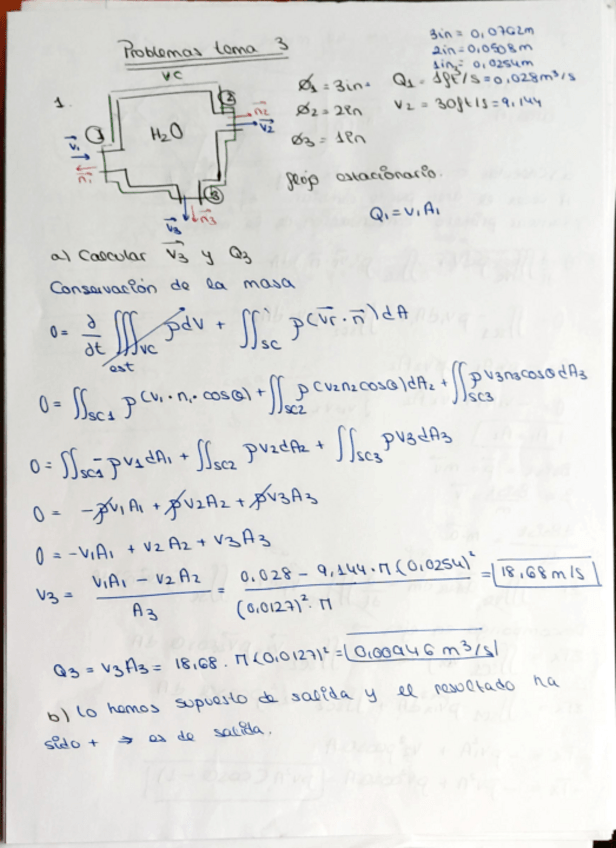 Problemas tema 3
3in = 0,0762m
2in = 0,0508m
1in = 0,0254m
1.
VC
1
2
3
H₂O
v⃗₁
n⃗₁
n⃗₂
v⃗₂
v⃗₃
n⃗₃
Ø1 = 3in
Q₁ = 1ft³/s = 0,028m³/s
Ø2 = 2in
V₂ = 30ft/s = 9,144
Ø3 = 1in
flujo estacionario.
Q₁ = V₁A₁
a) Calcular v⃗₃ y Q₃
Conservación de la masa
0 = ∂/∂t ∭VC ρdV + ∬SC ρ(v⃗r · n⃗)dA
est
0 = ∬SC1 ρ(v₁ · n₁ · cosθ) + ∬SC2 ρ(v₂n₂cosθ)dA₂ + ∬SC3 ρv₃n₃cosθdA₃
0 = ∬SC1 -ρv₁dA₁ + ∬SC2 ρv₂dA₂ + ∬SC3 ρv₃dA₃
0 = -ρv₁A₁ + ρv₂A₂ + ρv₃A₃
0 = -v₁A₁ + v₂A₂ + v₃A₃
v₃ = (v₁A₁ - v₂A₂)/A₃ = (0,028 - 9,144·π(0,0254)²)/((0,0127)²·π) = 18,68 m/s
Q₃ = v₃A₃ = 18,68 · π(0,0127)² = 0,00946 m³/s
b) lo hemos supuesto de salida y el resultado ha
sido + → es de salida.